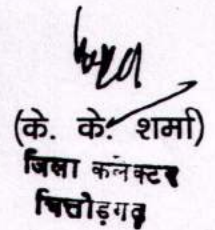 (के. के. शर्मा)
जिला कलेक्टर
चित्तोड़गढ़